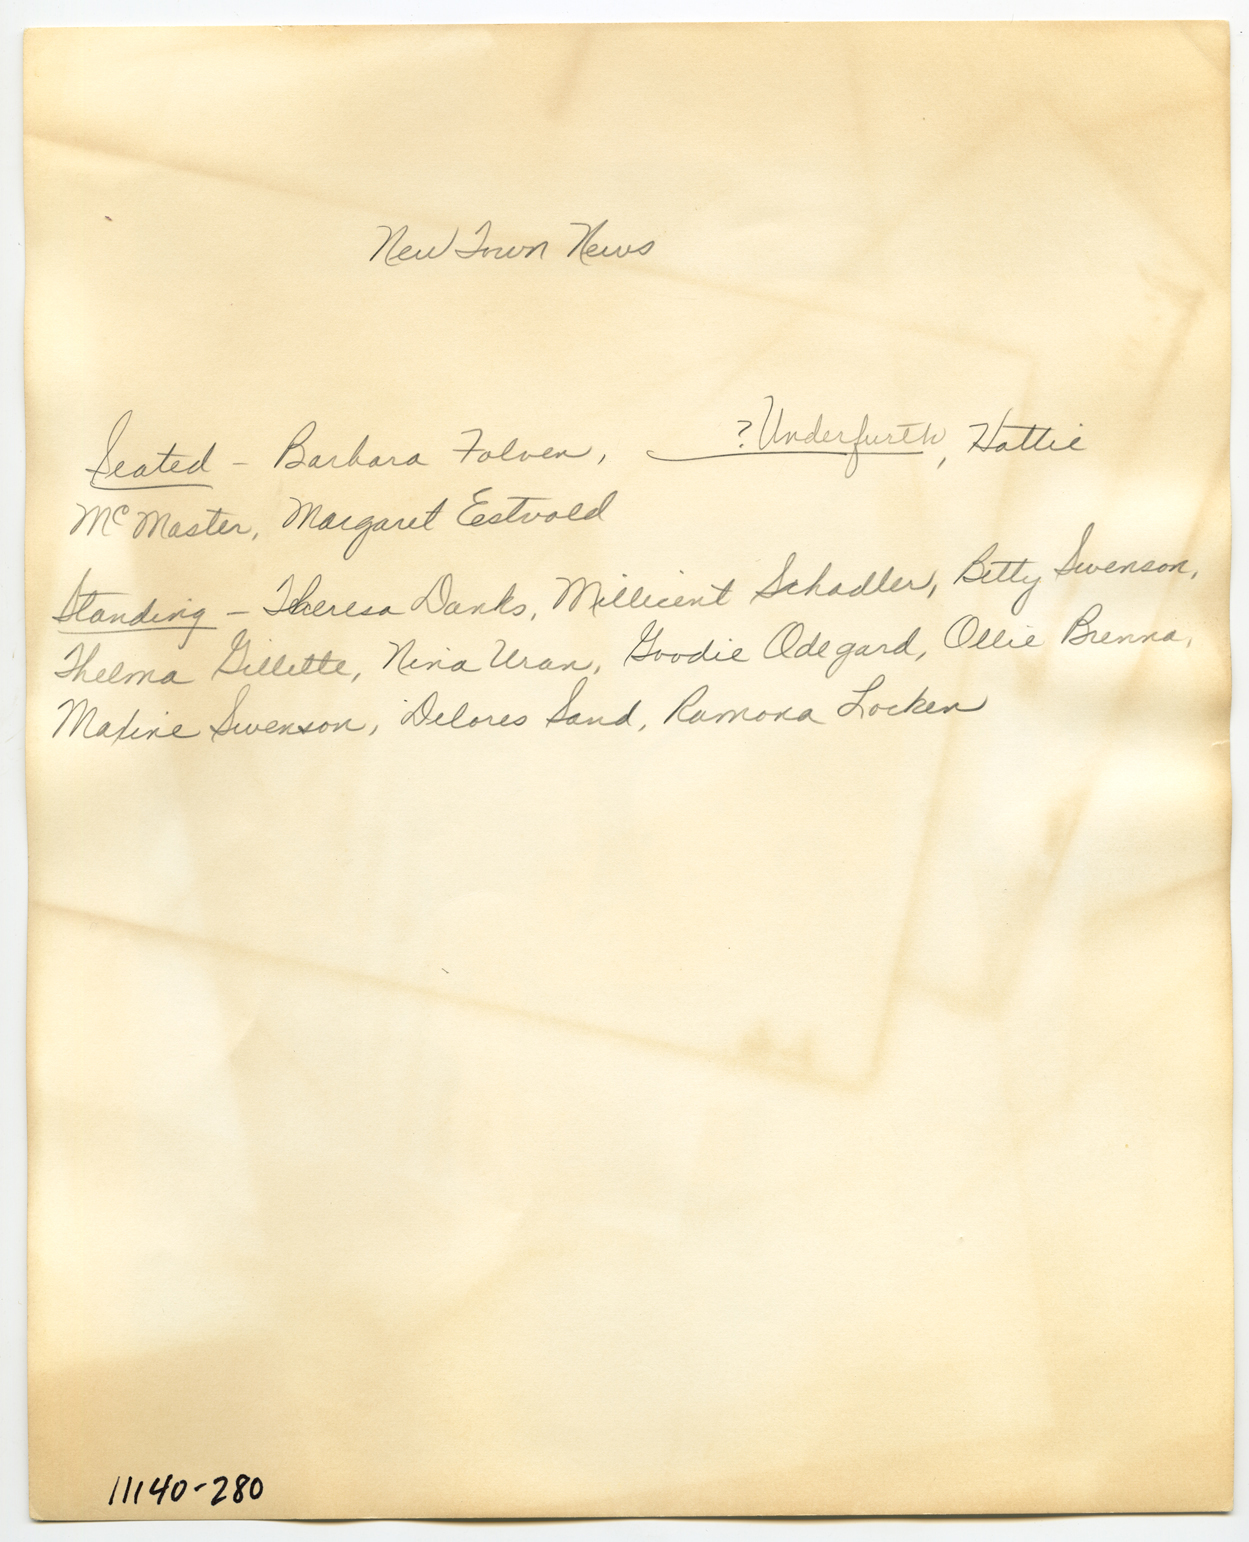 New Town News
Seated - Barbara Folven, ? Underfurth, Hattie
McMaster, Margaret Estvold
Standing - Theresa Danks, Millicent Schadler, Betty Swenson,
Thelma Gillette, Nina Uran, Goodie Odegard, Ollie Brenna,
Maxine Swenson, Delores Sand, Ramona Locken
11140-280